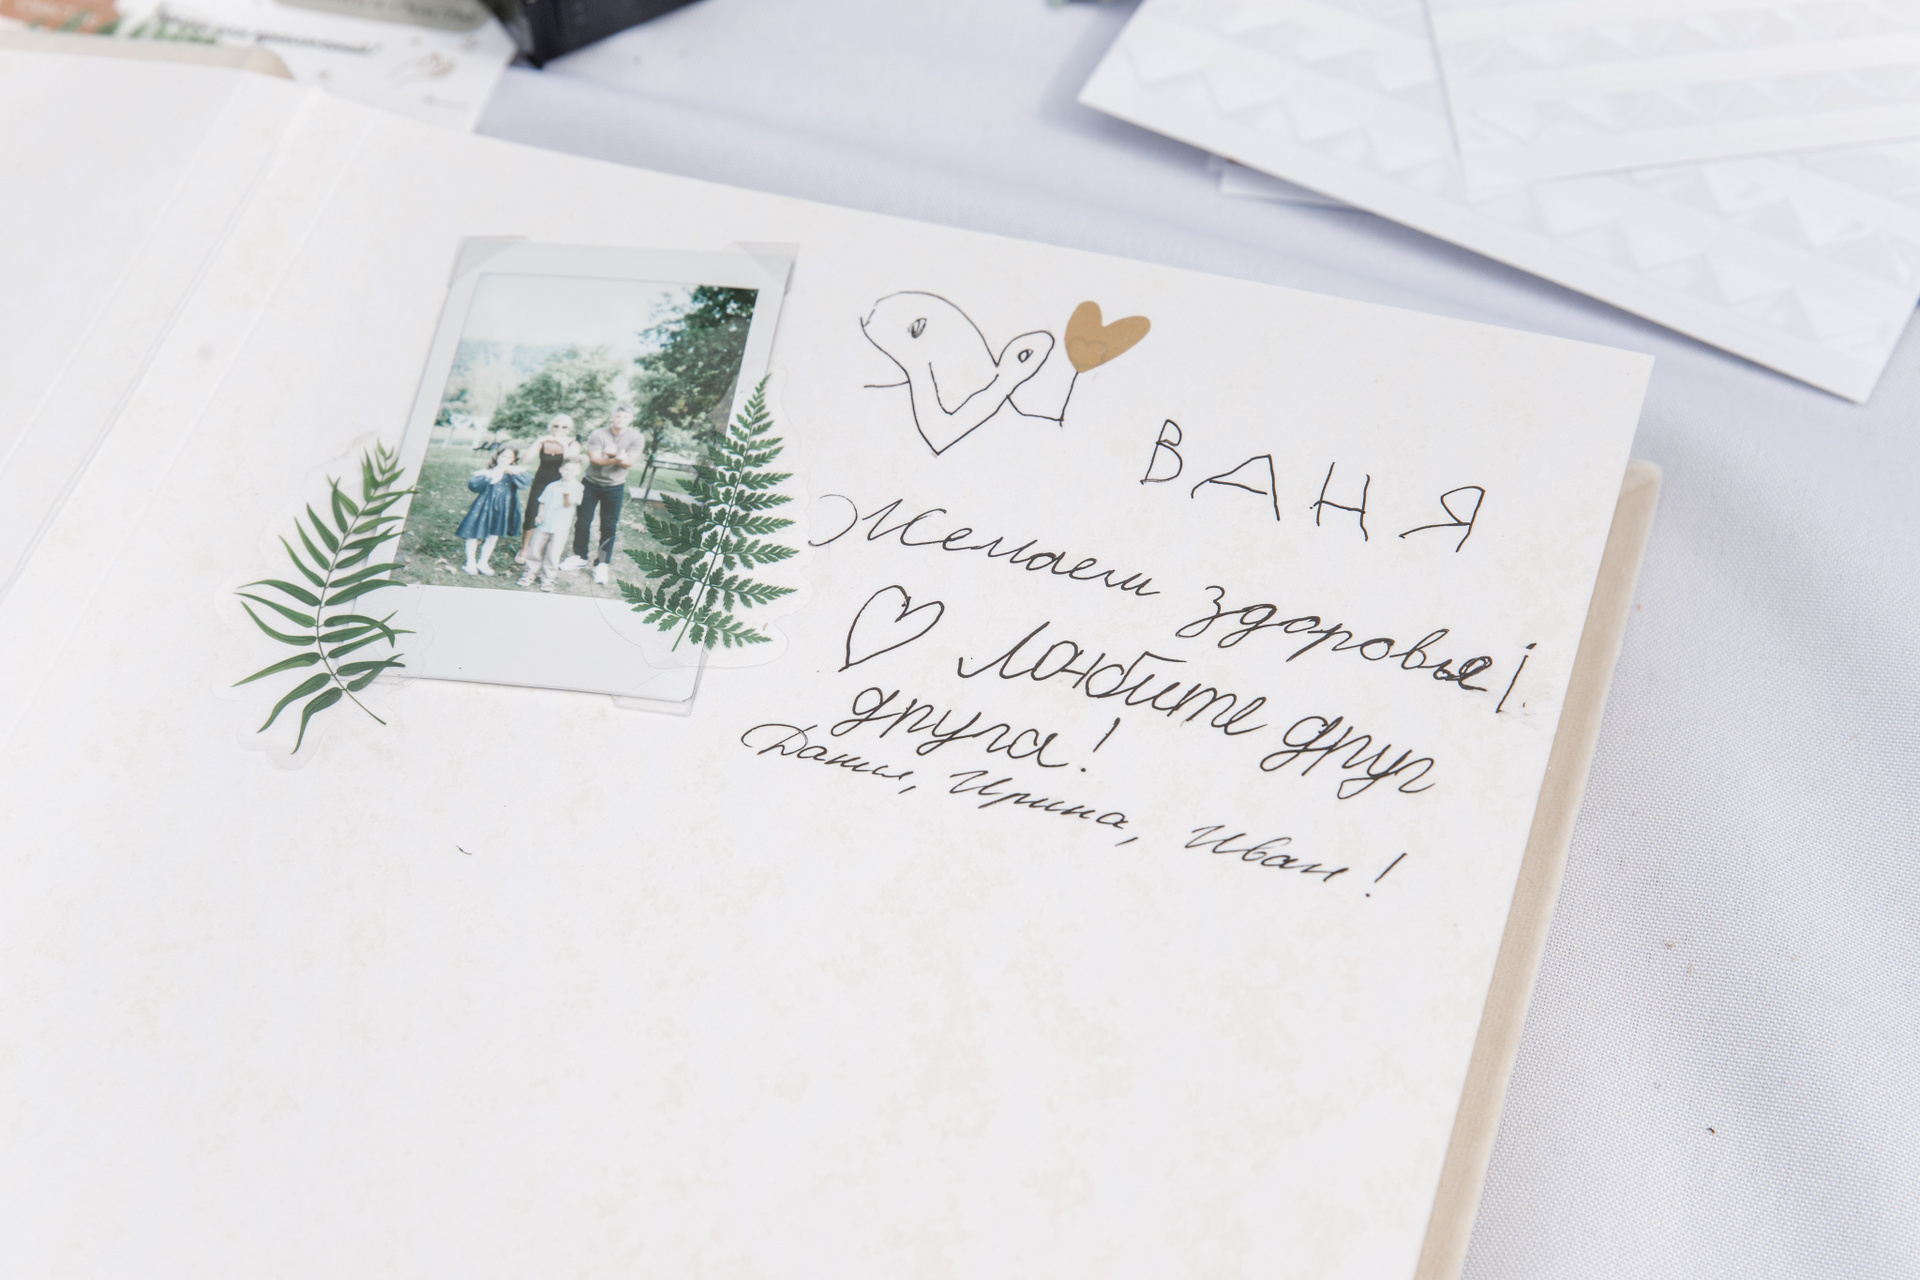 ВАНЯ
Желаем здоровья!
Любите друг
друга!
Ирина, Иван!